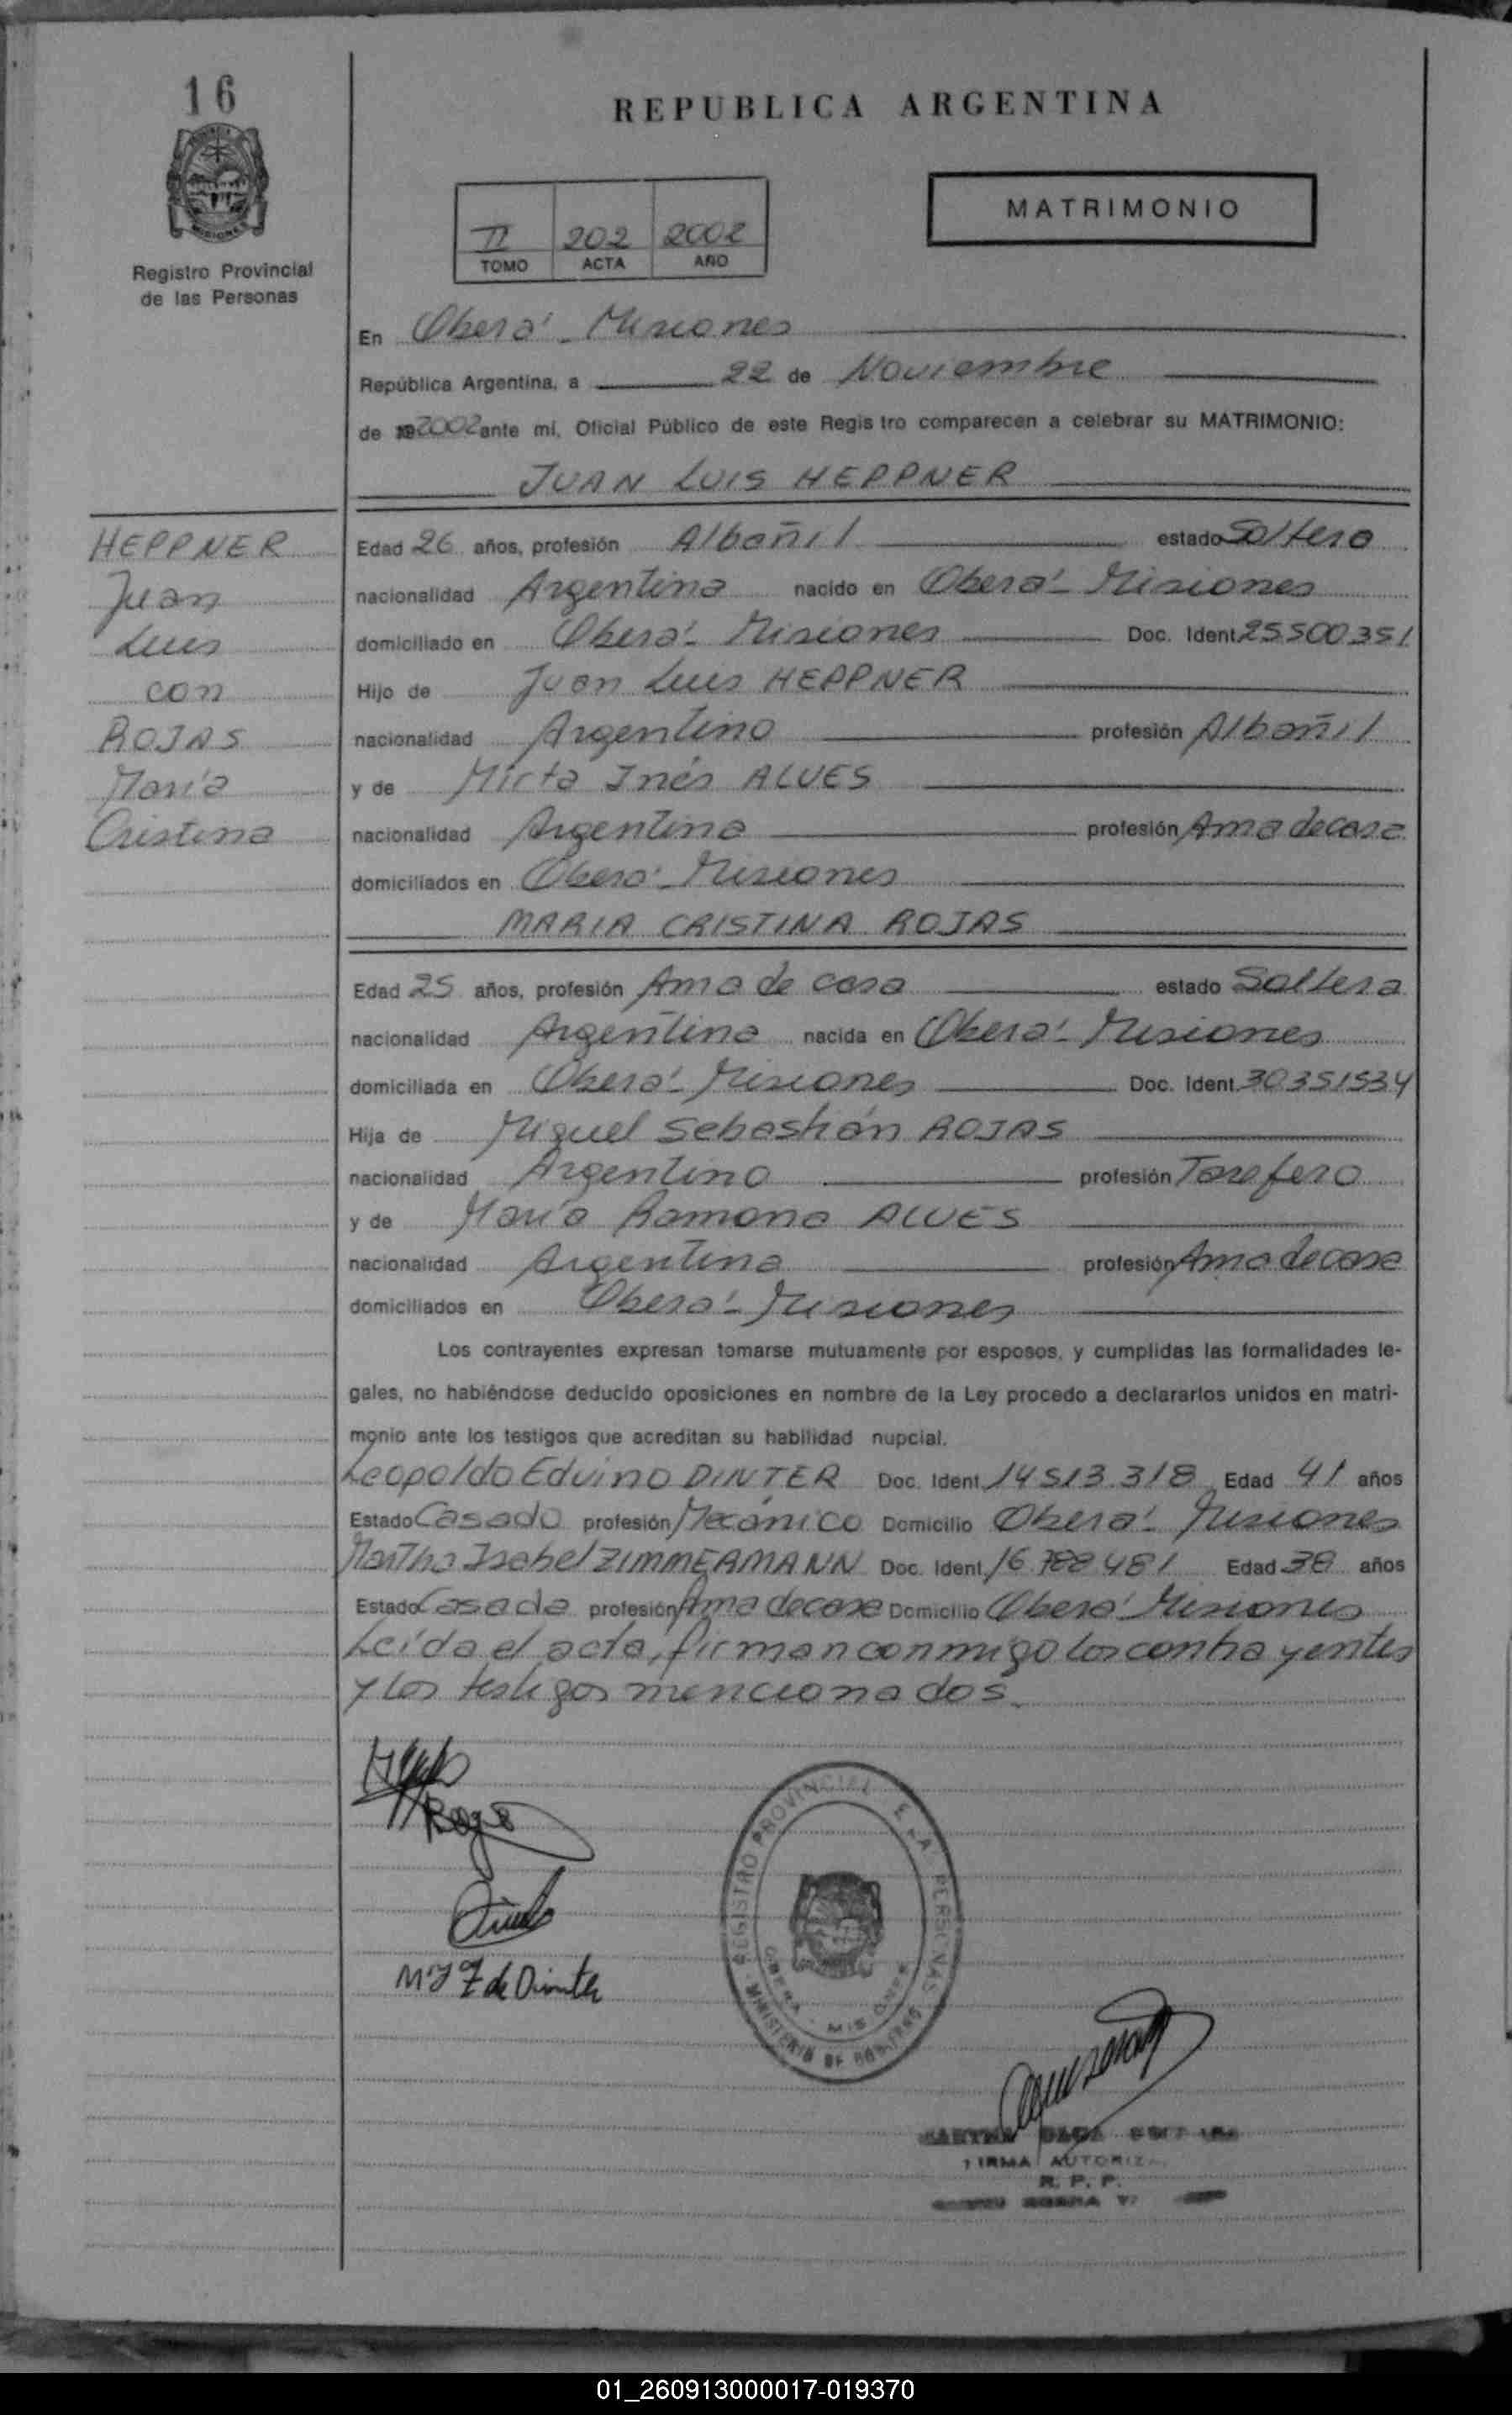 16
REPUBLICA ARGENTINA
MATRIMONIO
II 202 2002
TOMO ACTA AÑO
Registro Provincial
de las Personas
En Oberá - Misiones
República Argentina, a 22 de Noviembre
de 2002 ante mí, Oficial Público de este Registro comparecen a celebrar su MATRIMONIO:
JUAN LUIS HEPPNER
HEPPNER
Juan
Luis
con
ROJAS
María
Cristina
Edad 26 años, profesión Albañil estado Soltero
nacionalidad Argentina nacido en Oberá - Misiones
domiciliado en Oberá - Misiones Doc. Ident. 25.500.351
Hijo de Juan Luis HEPPNER
nacionalidad Argentino profesión Albañil
y de Mirta Inés ALVES
nacionalidad Argentina profesión Ama de casa
domiciliados en Oberá - Misiones
MARIA CRISTINA ROJAS
Edad 25 años, profesión Ama de casa estado Soltera
nacionalidad Argentina nacida en Oberá - Misiones
domiciliada en Oberá - Misiones Doc. Ident. 30351534
Hija de Miguel Sebastián ROJAS
nacionalidad Argentino profesión Tarefero
y de María Ramona ALVES
nacionalidad Argentina profesión Ama de casa
domiciliados en Oberá - Misiones
Los contrayentes expresan tomarse mutuamente por esposos, y cumplidas las formalidades le-
gales, no habiéndose deducido oposiciones en nombre de la Ley procedo a declararlos unidos en matri-
monio ante los testigos que acreditan su habilidad nupcial.
Leopoldo Edvino DINTER Doc. Ident. 14.513.318 Edad 41 años
Estado Casado profesión Mecánico Domicilio Oberá - Misiones
Martha Isabel ZIMMERMANN Doc. Ident. 16.788.481 Edad 38 años
Estado Casada profesión Ama de casa Domicilio Oberá - Misiones
Leída el acta, firman conmigo los contrayentes
y los testigos mencionados.
Rojas
M. I. Z de Dinter
REGISTRO PROVINCIAL PERSONAS
MINISTERIO DE GOBIERNO
OBERA - MISIONES
MARTHA
FIRMA AUTORIZ
R. P. P.
01_260913000017-019370